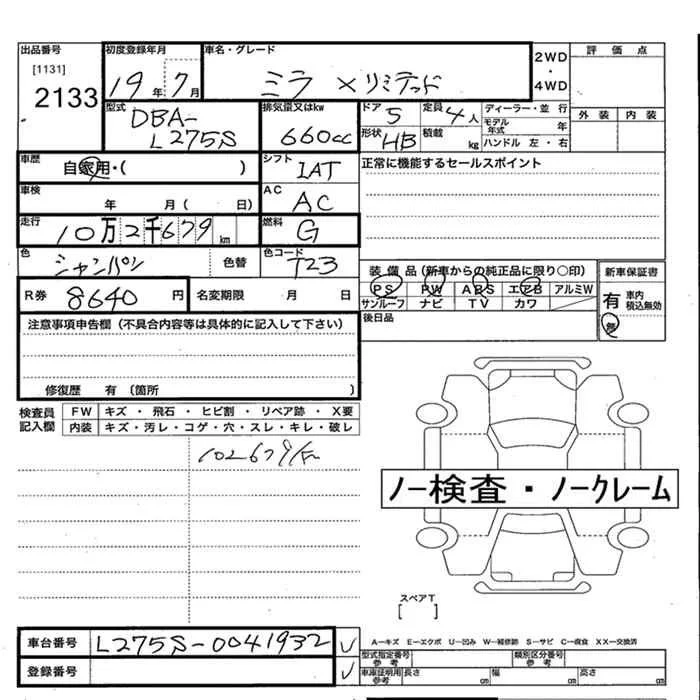 出品番号 初度登録年月 車名・グレード 2WD・4WD 評価点
[1131]
2133 19年7月 ミラ Xリミテッド
外装 内装
型式 排気量又はkw ドア 5 定員 4人 ディーラー・並行
DBA-L275S 660cc 形状 HB 積載 kg モデル年式 年
ハンドル 左・右
車歴 自家用・( ) シフト IAT 正常に機能するセールスポイント
車検 年 月( 日) AC AC
走行 10万2千679km 燃料 G
色 シャンパン 色替 色コード T23
装備品(新車からの純正品に限り〇印) 新車保証書
PS PW ABS エアB アルミW 有 車内積込無効
サンルーフ ナビ TV カワ 無
R券 8640円 名変期限 月 日
後日品
注意事項申告欄(不具合内容等は具体的に記入して下さい)
修復歴 有(箇所 )
検査員記入欄 FW キズ・飛石・ヒビ割・リペア跡・X要
内装 キズ・汚レ・コゲ・穴・スレ・キレ・破レ
102679
ノー検査・ノークレーム
スペアT
[ ]
車台番号 L275S-0041932
登録番号
A-キズ E-エクボ U-凹み W-補修跡 S-サビ C-腐食 XX-交換済
型式指定番号 参考 類別区分番号 参考
車庫証明用 参考 長さ cm 幅 cm 高さ cm